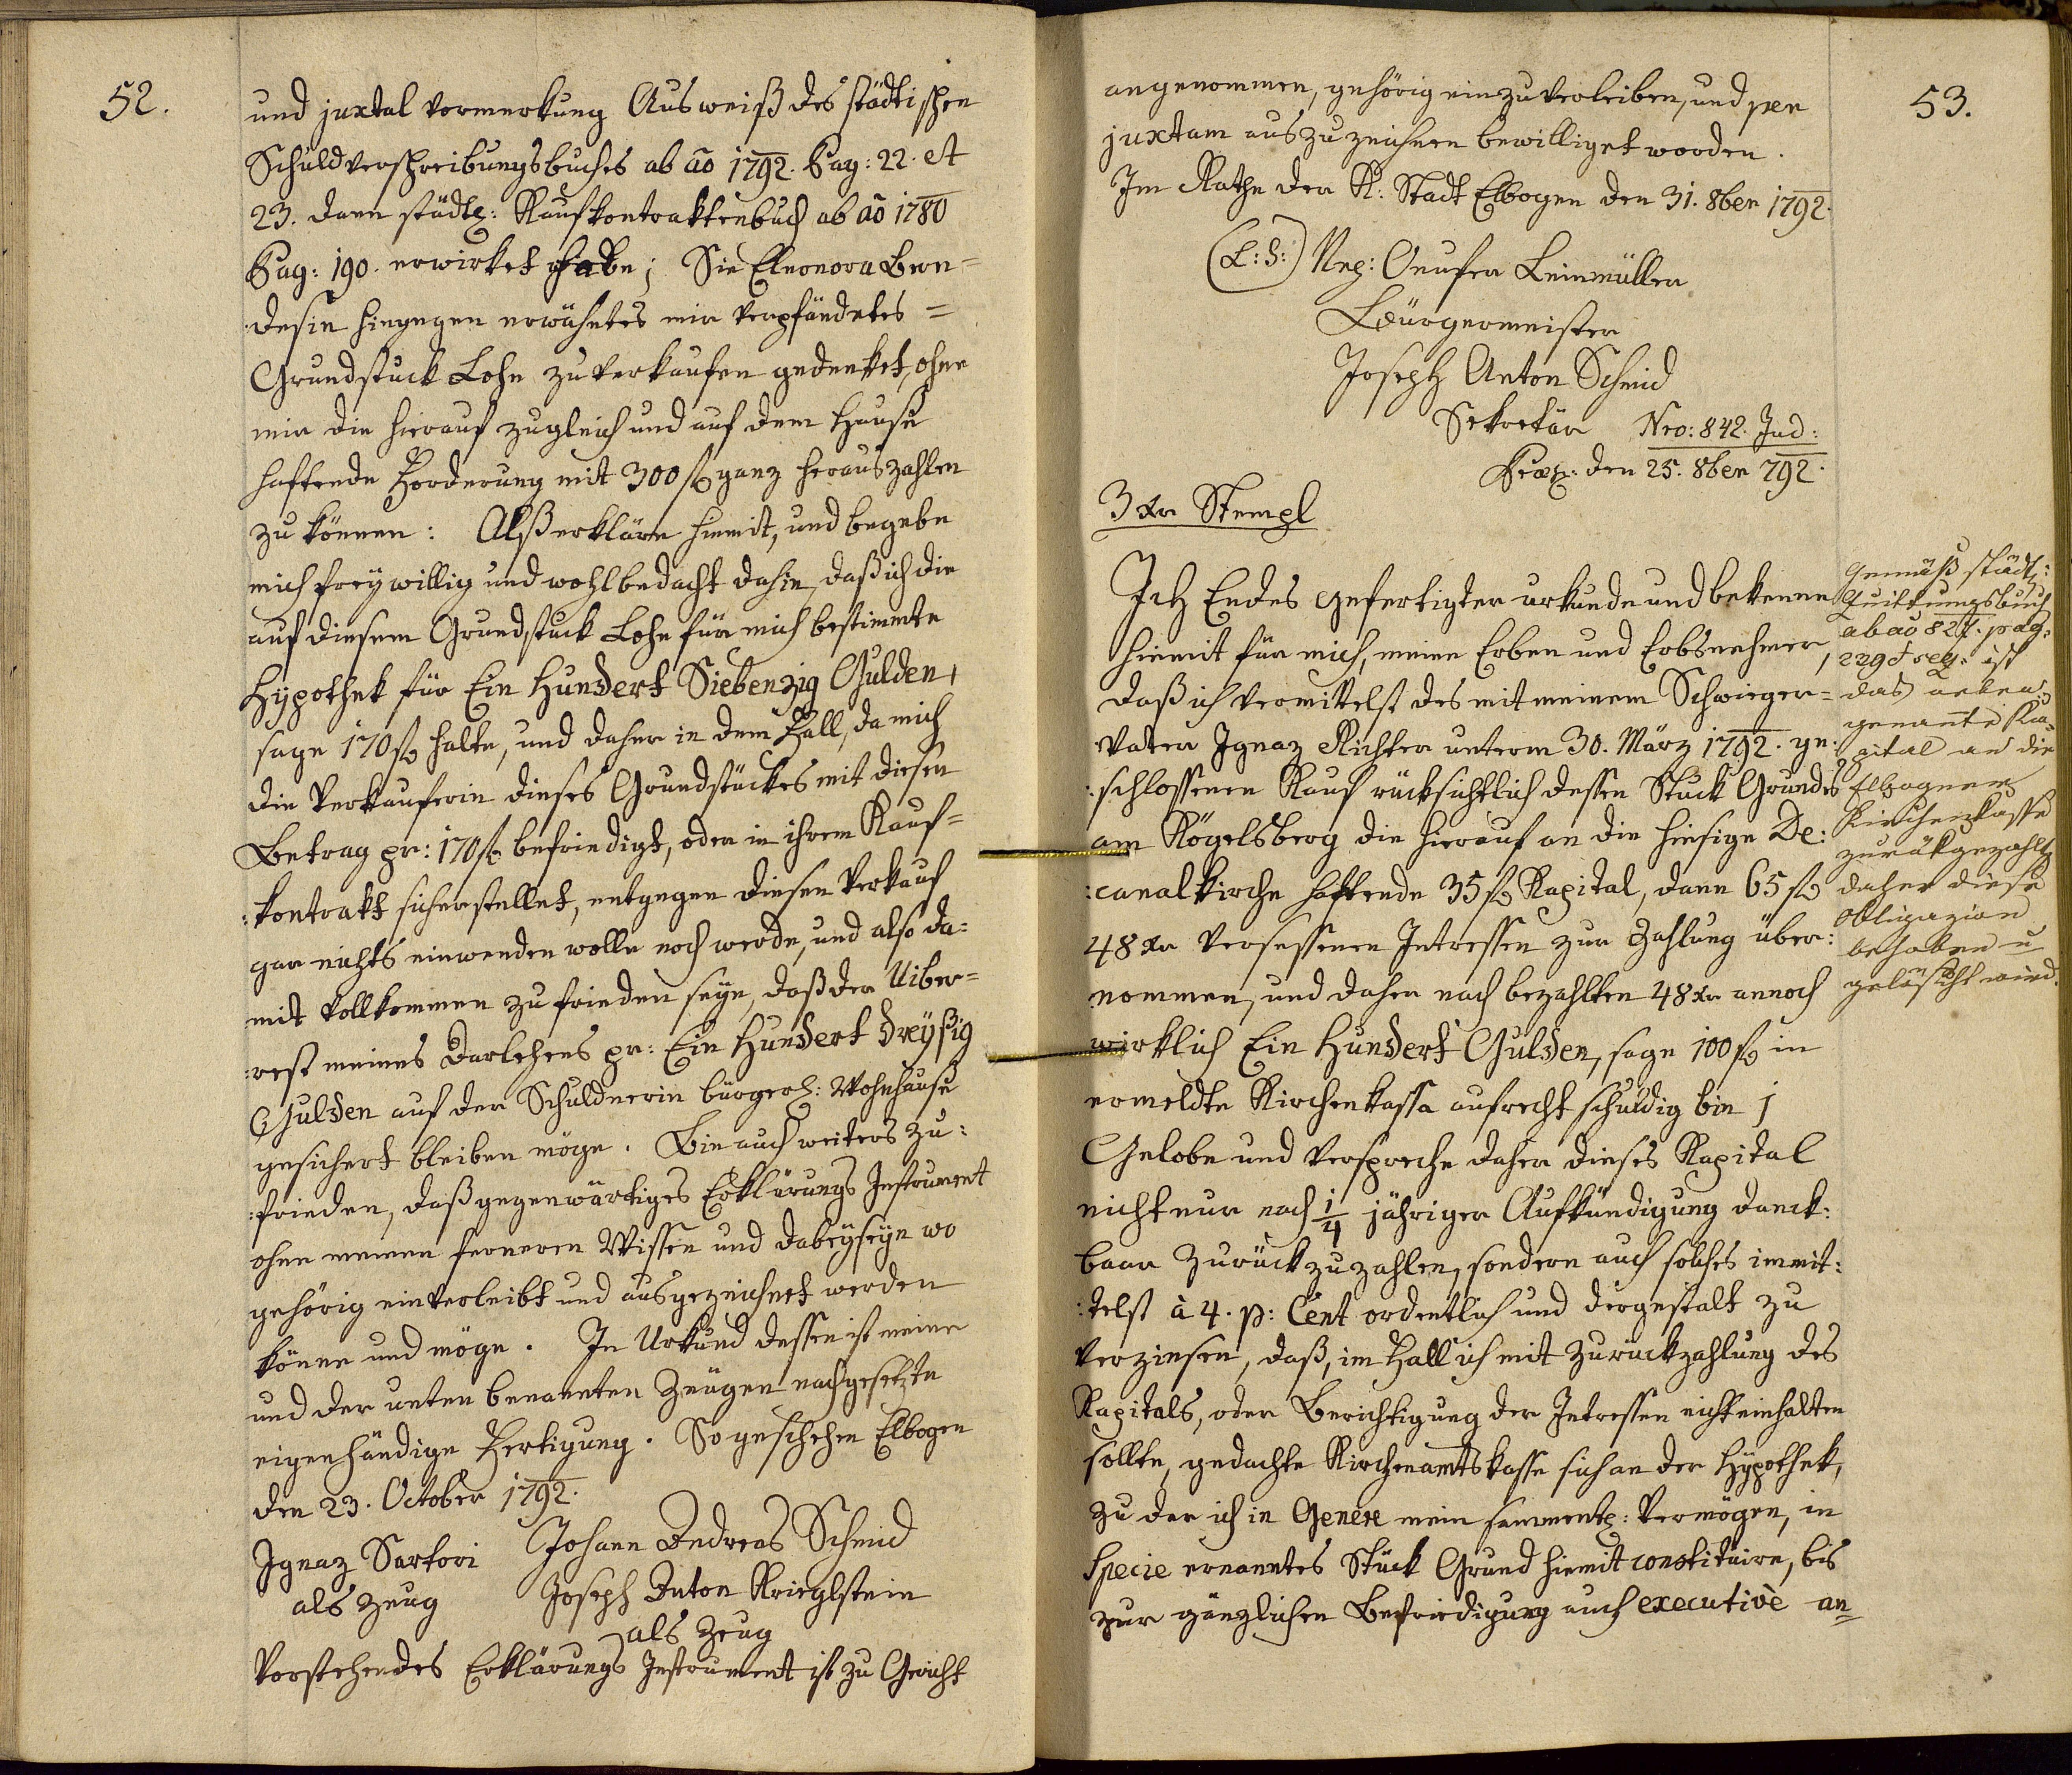 52.
und juxtal Vormerkung Ausweiß des städtischen
Schuldverschreibungsbuches ab aō 1792. Pag: 22. et
23. dann städt: Kaufkontraktenbuch ab aō 1780
Pag: 190. erwirket habe; Sie Eleonora
desin hingegen erwähntes mir verpfändetes =
Grundstuck Lohe zu verkaufen gedenket, ohne
mir die hierauf zugleich und auf dem Hause
haftende Forderung mit 300 f ganz herauszahlen
zu können: Alß erkläre hiemit, und begebe
mich freywillig und wohlbedacht dahin, daß ich die
auf diesem Grundstuck Lohe für mich bestimmte
Hypothek für Ein Hundert Siebenzig Gulden,
sage 170 f halte, und daher in dem Fall, da mich
die Verkauferin dieses Grundstückes mit diesen
Betrag pr: 170 f befriedigt, oder in ihrem Kauf=
:kontrakt sicherstellet, entgegen diesen Verkauf
gar nichts einwenden wolle noch werde, und also da=
mit vollkommen zufrieden seye, daß der Uiber=
:rest meines Darlehens pr: Ein Hundert dreyßig
Gulden auf der Schuldnerin bürgerl: Wohnhauße
gesichert bleiben möge. Bin auch weiters zu:
:frieden, daß gegenwärtiges Erklärungs Instrument
ohne meinen ferneren Wissen und dabeyseyn wo
gehörig einverleibt und ausgezeichnet werden
könne und möge. In Urkund dessen ist meine
und der unten benannten Zeugen nachgesetzte
eigenhändige Fertigung. So geschehen Elbogen
den 23. October 1792.
Ignaz Sartori Johann Andreas Schmid
als Zeug Joseph Anton Krieglstein
als Zeug
Vorstehendes Erklärungs Instrument ist zu Gericht
53.
angenommen, gehörig einzuverleiben, und per
juxtam auszuzeichnen bewilliget worden.
Im Rathe der K: Stadt Elbogen den 31. 8ber 1792.
(L:S:) Onufer Leinmüller
Bürgermeister
Joseph Anton Schmid
Sekretär Nro: 842. Jud:
den 25. 8ber 792.
3 xr Stempl
Ich Endes gefertigter urkunde und bekenne
hiemit für mich, meine Erben und Erbnehmer,
daß ich vermittelst des mit meinem Schwieger=
vater Ignaz Richter unterm 30. März 1792. ge:
:schlossenen Kauf rücksichtlich dessen Stuck Grundes
am Kögelsberg die hierauf an die hiesige De:
:canalkirche haftende 35 f Kapital, dann 65 f
48 xr versessenen Intressen zur Zahlung über:
nommen, und daher nach bezahlten 48 xr annoch
wirklich Ein Hundert Gulden, sage 100 f in
ermeldte Kirchenkassa aufrecht schuldig bin;
Gelobe und verspreche daher dieses Kapital
nicht nur nach 1/4 jähriger Aufkündigung danck:
baar zurückzuzahlen, sondern auch solches immit:
:telst à 4. p: Cent ordentlich und dergestalt zu
verzinsen, daß, im Fall ich mit Zurückzahlung des
Kapitals, oder Berichtigung der Intressen nicht einhalten
sollte, gedachte Kirchenamtskasse sich an der Hypothek,
zu der ich in Genere mein sammentl: Vermögen, in
Specie ernanntes Stück Grund hiemit constituire, bis
zur gänzlichen Befriedigung auch executivè an=
Gemäß städt:
Quittungsbuch
ab aō 827. pag.
229 et seq: ist
das neben:
genannte Ka=
pital an die
Elbogner
Kirchenkasse
zurükgezahlt
daher diese
Obligazion
behoben u
gelöscht wird.